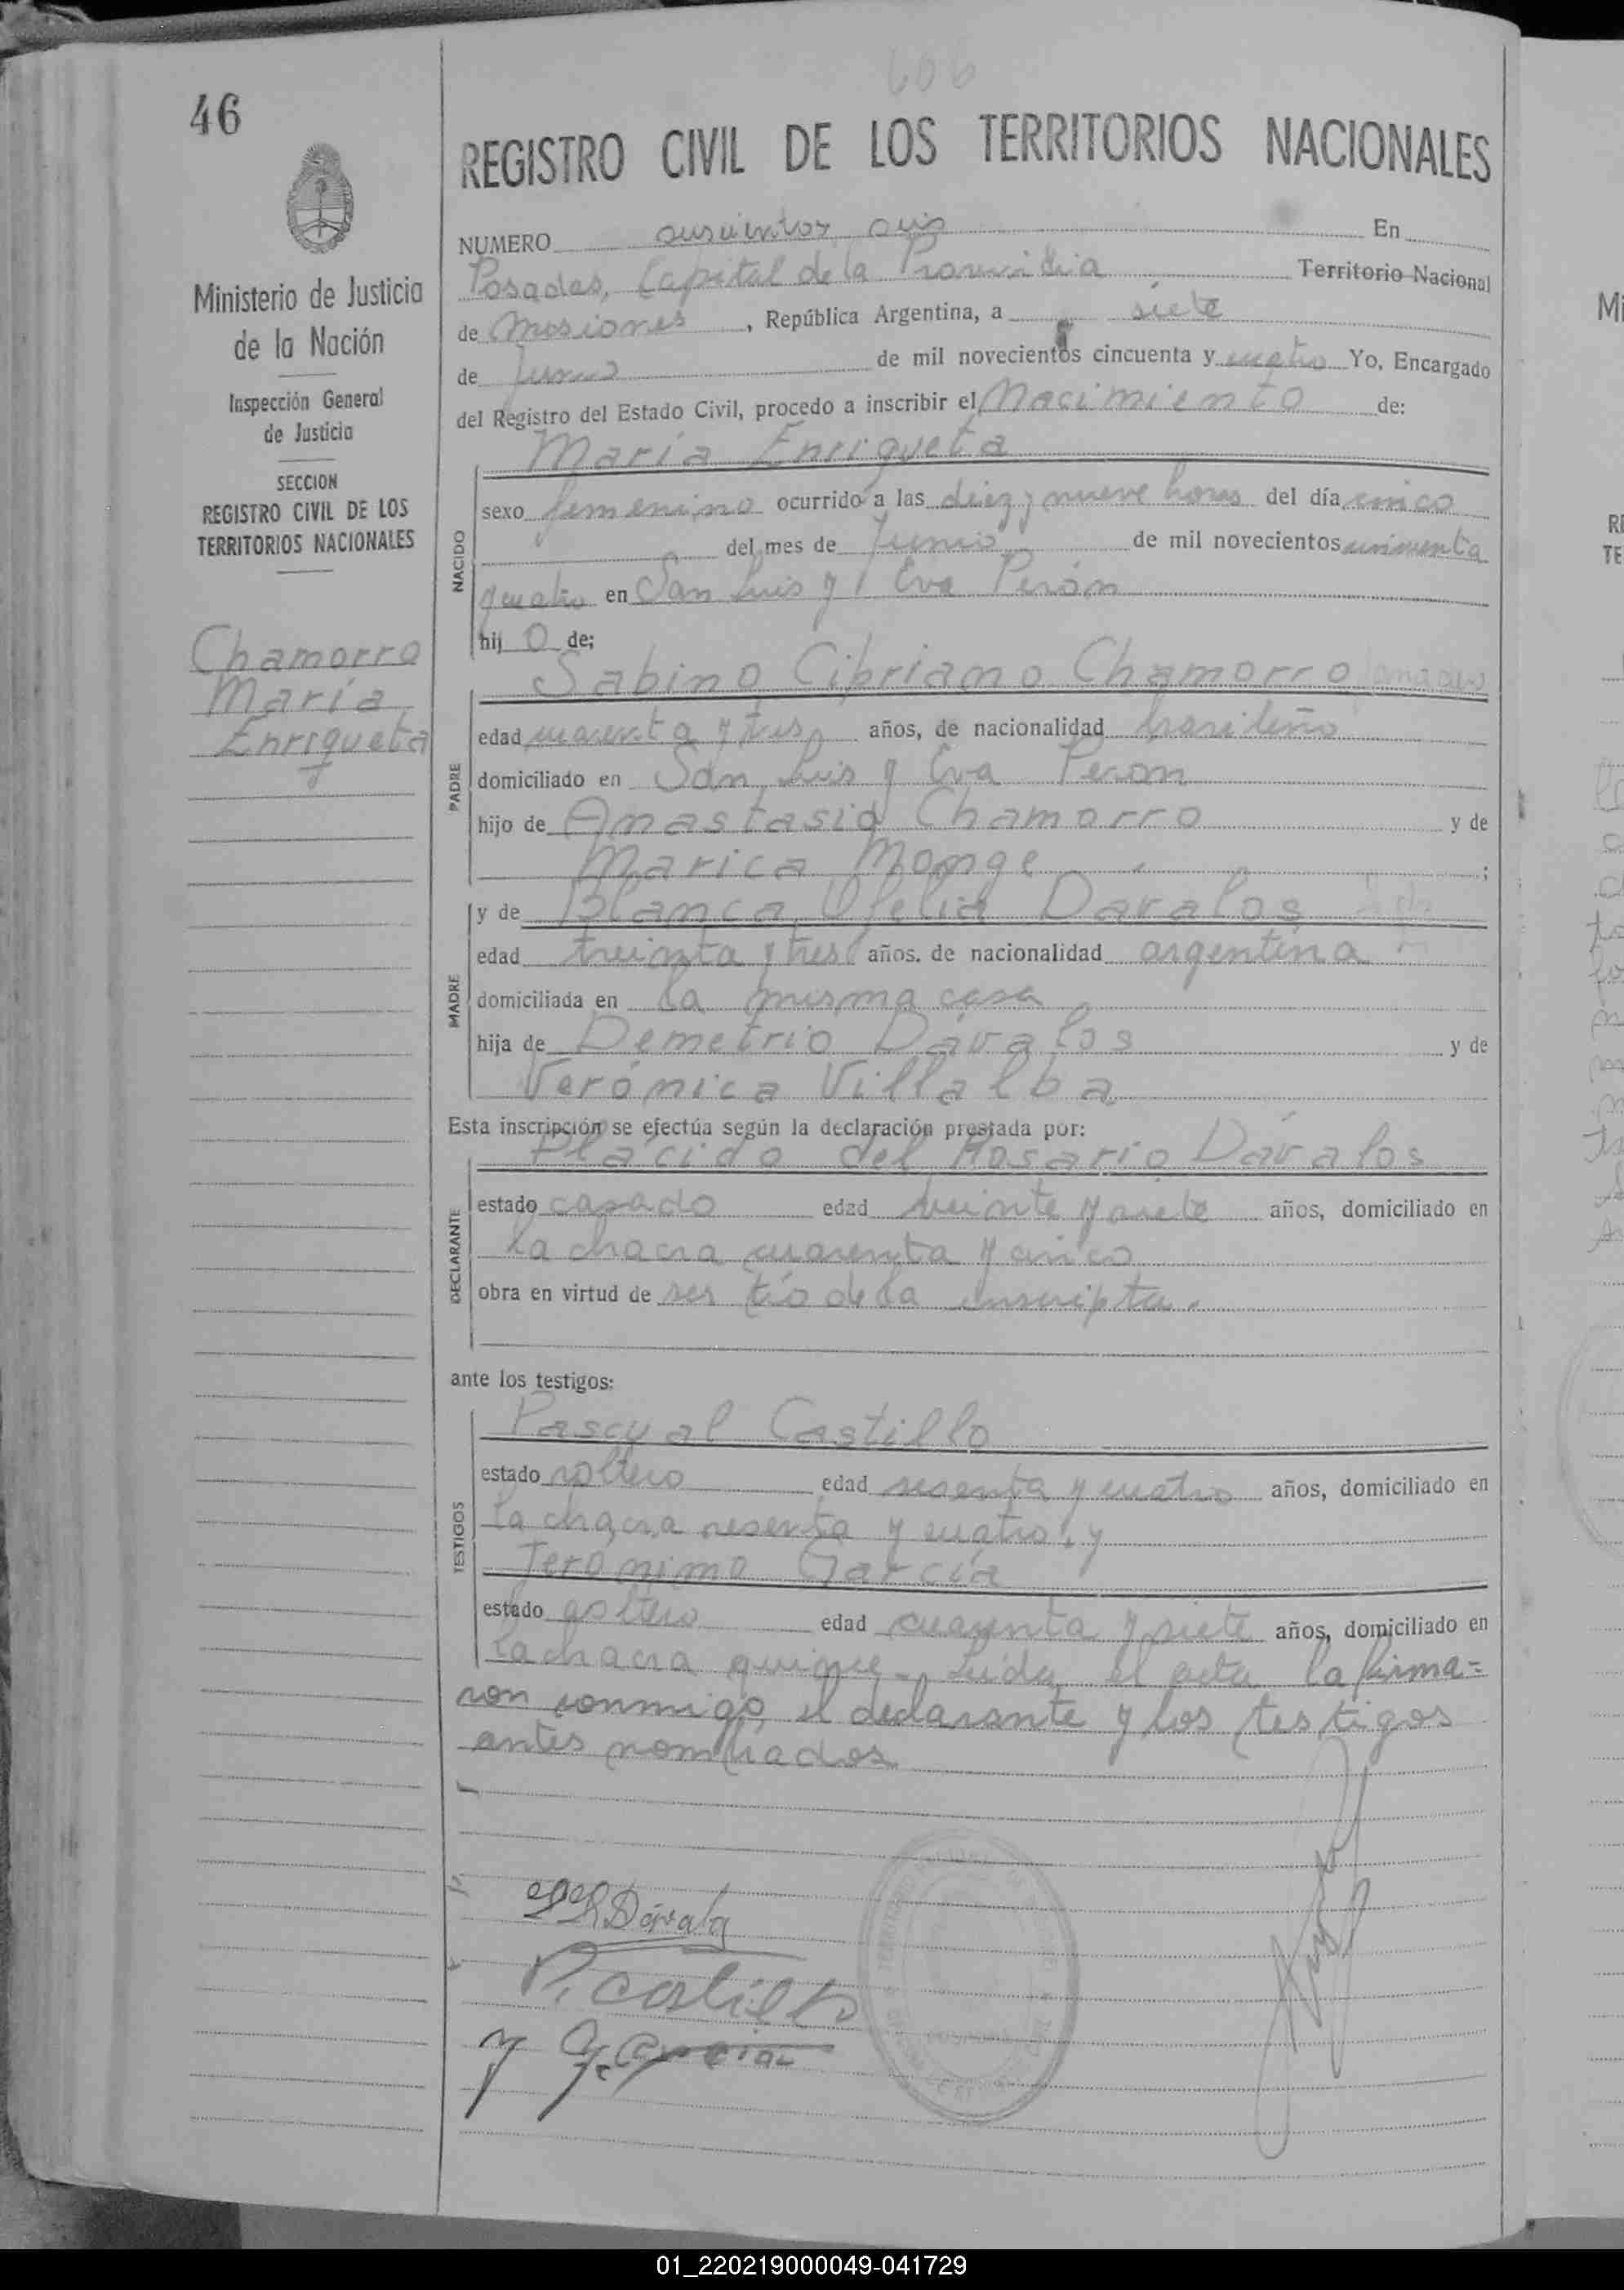 606
46
REGISTRO CIVIL DE LOS TERRITORIOS NACIONALES
Ministerio de Justicia
de la Nación
Inspección General
de Justicia
SECCION
REGISTRO CIVIL DE LOS
TERRITORIOS NACIONALES
Chamorro
María
Enriqueta
NUMERO seiscientos seis En
Posadas, Capital de la Provincia Territorio Nacional
de Misiones, República Argentina, a siete
de Junio de mil novecientos cincuenta y cuatro Yo, Encargado
del Registro del Estado Civil, procedo a inscribir el Nacimiento de:
María Enriqueta
NACIDO
sexo femenino ocurrido a las diez y nueve horas del día cinco
del mes de Junio de mil novecientos cincuenta
y cuatro en San Luis y Eva Perón
hij o de;
Sabino Cipriano Chamorro
PADRE
edad cuarenta y tres años, de nacionalidad brasileño
domiciliado en San Luis y Eva Peron
hijo de Anastasio Chamorro y de
Marica Monge ;
MADRE
y de Blanca Ofelia Dávalos
edad treinta y tres años. de nacionalidad argentina
domiciliada en la misma casa
hija de Demetrio Dávalos y de
Verónica Villalba
Esta inscripción se efectúa según la declaración prestada por:
Plácido del Rosario Dávalos
DECLARANTE
estado casado edad veinte y siete años, domiciliado en
la chacra cuarenta y cinco
obra en virtud de ser tío de la inscripta.
ante los testigos:
TESTIGOS
Pascual Castillo
estado soltero edad sesenta y cuatro años, domiciliado en
la chacra sesenta y cuatro, y
Jerónimo García
estado soltero edad cuarenta y siete años, domiciliado en
la chacra quince. Leída el acta la firma=
ron conmigo, el declarante y los testigos
antes nombrados
Dávalos
P. Castillo
J. Garcia
01_220219000049-041729